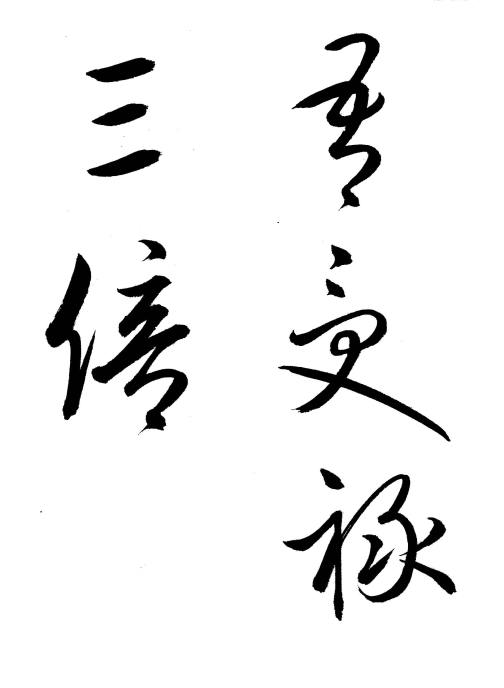 吾受禄
三倍